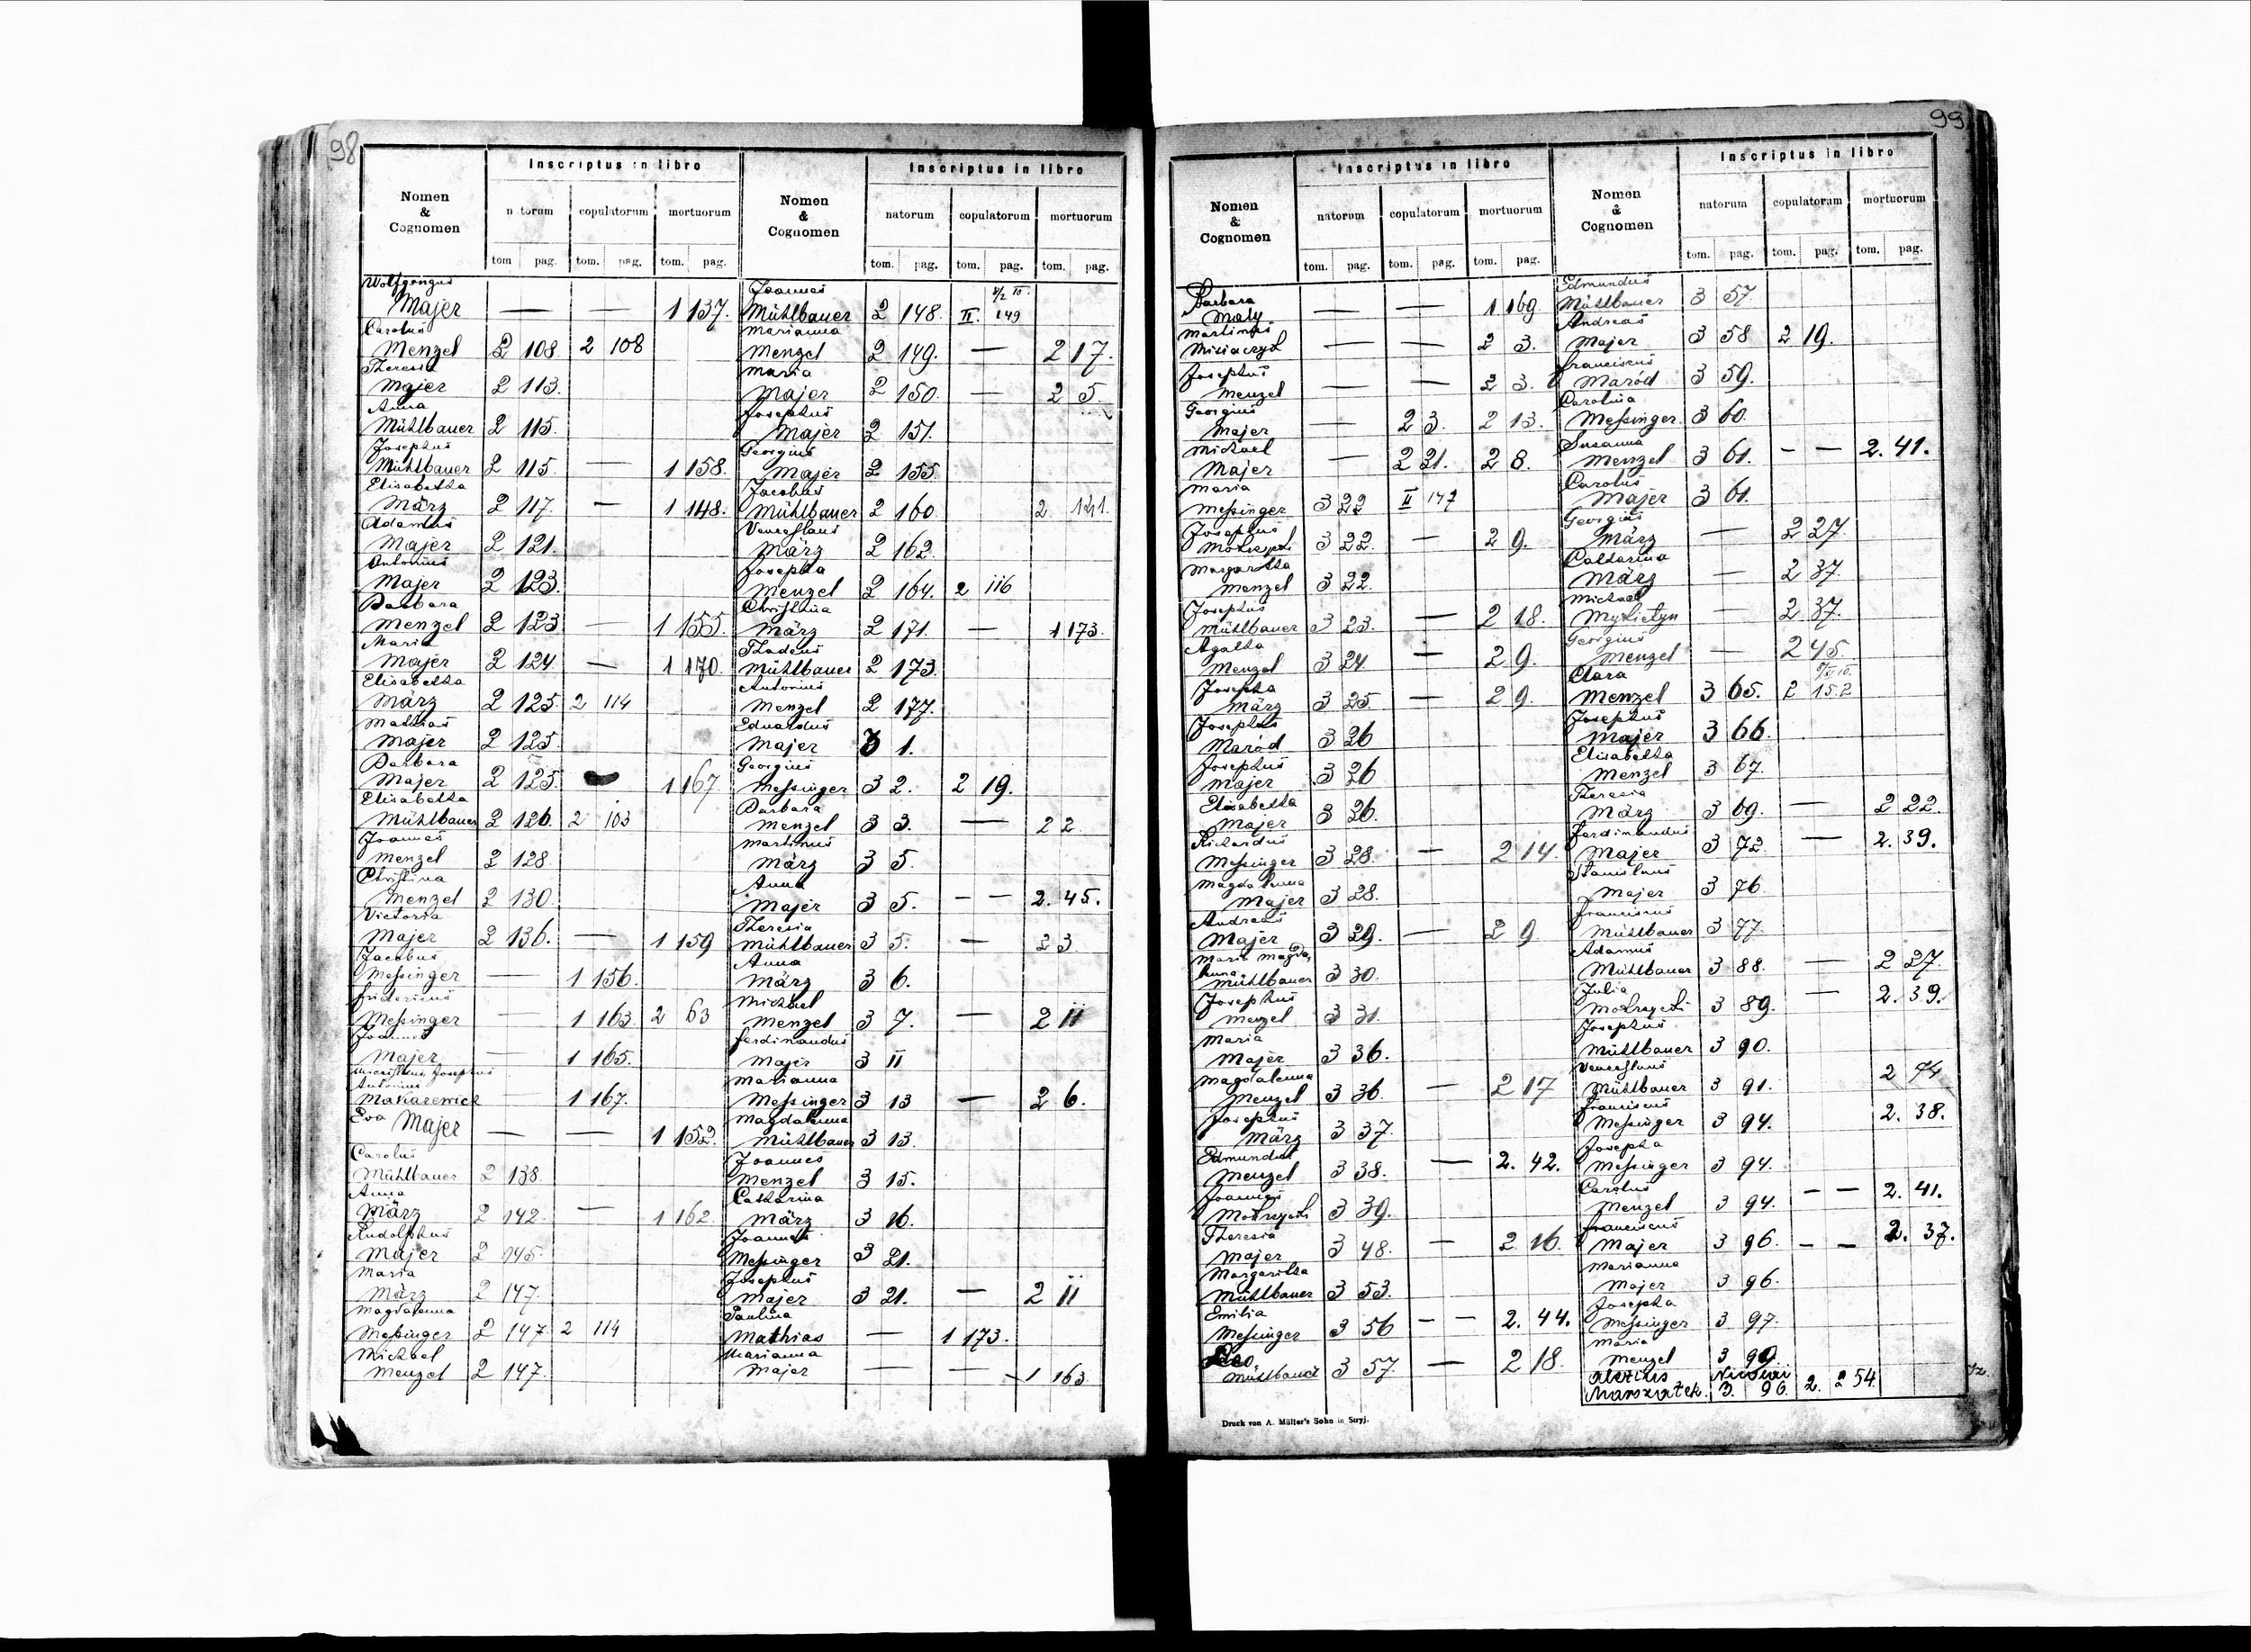 98
Inscriptus in libro
Nomen & Cognomen
natorum copulatorum mortuorum
tom. pag. tom. pag. tom. pag.
Wolfgangus
Majer — — 1 137.
Carolus
Menzel 2 108. 2 108
Theresia
Majer 2 113.
Anna
Mühlbauer 2 115.
Josephus
Mühlbauer 2 115. — 1 158.
Elisabetha
März 2 117. — 1 148.
Adamus
Majer 2 121.
Antonius
Majer 2 123.
Barbara
Menzel 2 123 — 1 155.
Maria
Majer 2 124 — 1 170.
Elisabetha
März 2 125. 2 114
Mathias
Majer 2 125.
Barbara
Majer 2 125. 1 167.
Elisabetha
Mühlbauer 2 126. 2 103
Joannes
Menzel 2 128.
Christina
Menzel 2 130.
Victoria
Majer 2 136. — 1 159
Jacobus
Messinger — 1 156.
Fridericus
Messinger — 1 163. 2 63
Joannes
Majer — 1 165.
Josephus
Antonius
Makarewicz — 1 167.
Eva Majer — — 1 152.
Carolus
Mühlbauer 2 138.
Anna
März 2 142. — 1 162.
Rudolphus
Majer 2 145.
Maria
März 2 147.
Magdalenna
Messinger 2 147. 2 114
Michael
Menzel 2 147.
Inscriptus in libro
Nomen & Cognomen
natorum copulatorum mortuorum
tom. pag. tom. pag. tom. pag.
Joannes
Mühlbauer 2 148. II. 149
Marianna
Menzel 2 149. — 2 17.
Maria
Majer 2 150. — 2 5.
Josephus
Majer 2 151.
Georgius
Majer 2 155.
Jacobus
Mühlbauer 2 160. 2. 141.
Venceslaus
März 2 162.
Josepha
Menzel 2 164. 2 116
Christina
März 2 171. — 1 173.
Thadeus
Mühlbauer 2 173.
Antonius
Menzel 2 177.
Eduardus
Majer 3 1.
Georgius
Messinger 3 2. 2 19.
Barbara
Menzel 3 3. — 2 2.
Martinus
März 3 5.
Anna
Majer 3 5. — — 2. 45.
Theresia
Mühlbauer 3 5. — 2 3
Anna
März 3 6.
Michael
Menzel 3 7. — 2 11
Ferdinandus
Majer 3 11
Marianna
Messinger 3 13 — 2 6.
Magdalenna
Mühlbauer 3 13.
Joannes
Menzel 3 15.
Catharina
März 3 16.
Joannes
Messinger 3 21.
Josephus
Majer 3 21. — 2 11
Paulina
Mathias — 1 173.
Marianna
Majer — — 1 163
99
Inscriptus in libro
Nomen & Cognomen
natorum copulatorum mortuorum
tom. pag. tom. pag. tom. pag.
Barbara
Maly — — 1 169.
Martinus
— — 2 3.
Josephus
Menzel — — 2 3.
Georgius
Majer — 2 3. 2 13.
Michael
Majer — 2 21. 2 8.
Maria
Messinger 3 22 II 147
Josephus
3 22. — 2 9.
Margaretha
Menzel 3 22.
Josephus
Mühlbauer 3 23. — 2 18.
Agatha
Menzel 3 24. — 2 9.
Josepha
März 3 25. — 2 9.
Josephus
Maród 3 26
Josephus
Majer 3 26
Elisabetha
Majer 3 26.
Richardus
Messinger 3 28. — 2 14.
Magdalenna
Majer 3 28.
Andreas
Majer 3 29. — 2 9
Maria Magda,
lenna
Mühlbauer 3 30.
Josephus
Menzel 3 31.
Maria
Majer 3 36.
Magdalenna
Menzel 3 36. — 2 17
Josephus
März 3 37.
Edmundus
Menzel 3 38. — 2. 42.
Joannes
3 39.
Theresia
Majer 3 48. — 2 16.
Margaritha
Mühlbauer 3 53.
Emilia
Messinger 3 56 — — 2. 44.
Leo
Mühlbauer 3 57. — 2 18.
Druck von A. Müller's Sohn in Stryj.
Inscriptus in libro
Nomen & Cognomen
natorum copulatorum mortuorum
tom. pag. tom. pag. tom. pag.
Edmundus
Mühlbauer 3 57.
Andreas
Majer 3 58 2 19.
Franciscus
Maród 3 59.
Carolina
Messinger 3 60.
Susanna
Menzel 3 61. — — 2. 41.
Carolus
Majer 3 61.
Georgius
März — 2 27.
Catharina
März — 2 37.
Michael
Mykietyn — 2 37.
Georgius
Menzel — 2 45.
Clara
Menzel 3 65. 2 152
Josephus
Majer 3 66.
Elisabetha
Menzel 3 67.
Theresia
März 3 69. — 2 22.
Ferdinandus
Majer 3 72. — 2. 39.
Stanislaus
Majer 3 76.
Franciscus
Mühlbauer 3 77.
Adamus
Mühlbauer 3 88. — 2 27.
Julia
3 89. — 2. 39.
Josephus
Mühlbauer 3 90.
Venceslaus
Mühlbauer 3 91. 2 74
Franciscus
Messinger 3 94. 2. 38.
Josepha
Messinger 3 94.
Carolus
Menzel 3 94. — — 2. 41.
Franciscus
Majer 3 96. — — 2. 37.
Marianna
Majer 3 96.
Josepha
Messinger 3 97.
Maria
Menzel 3 99.
Marszałek. 3. 96. 2. 254.